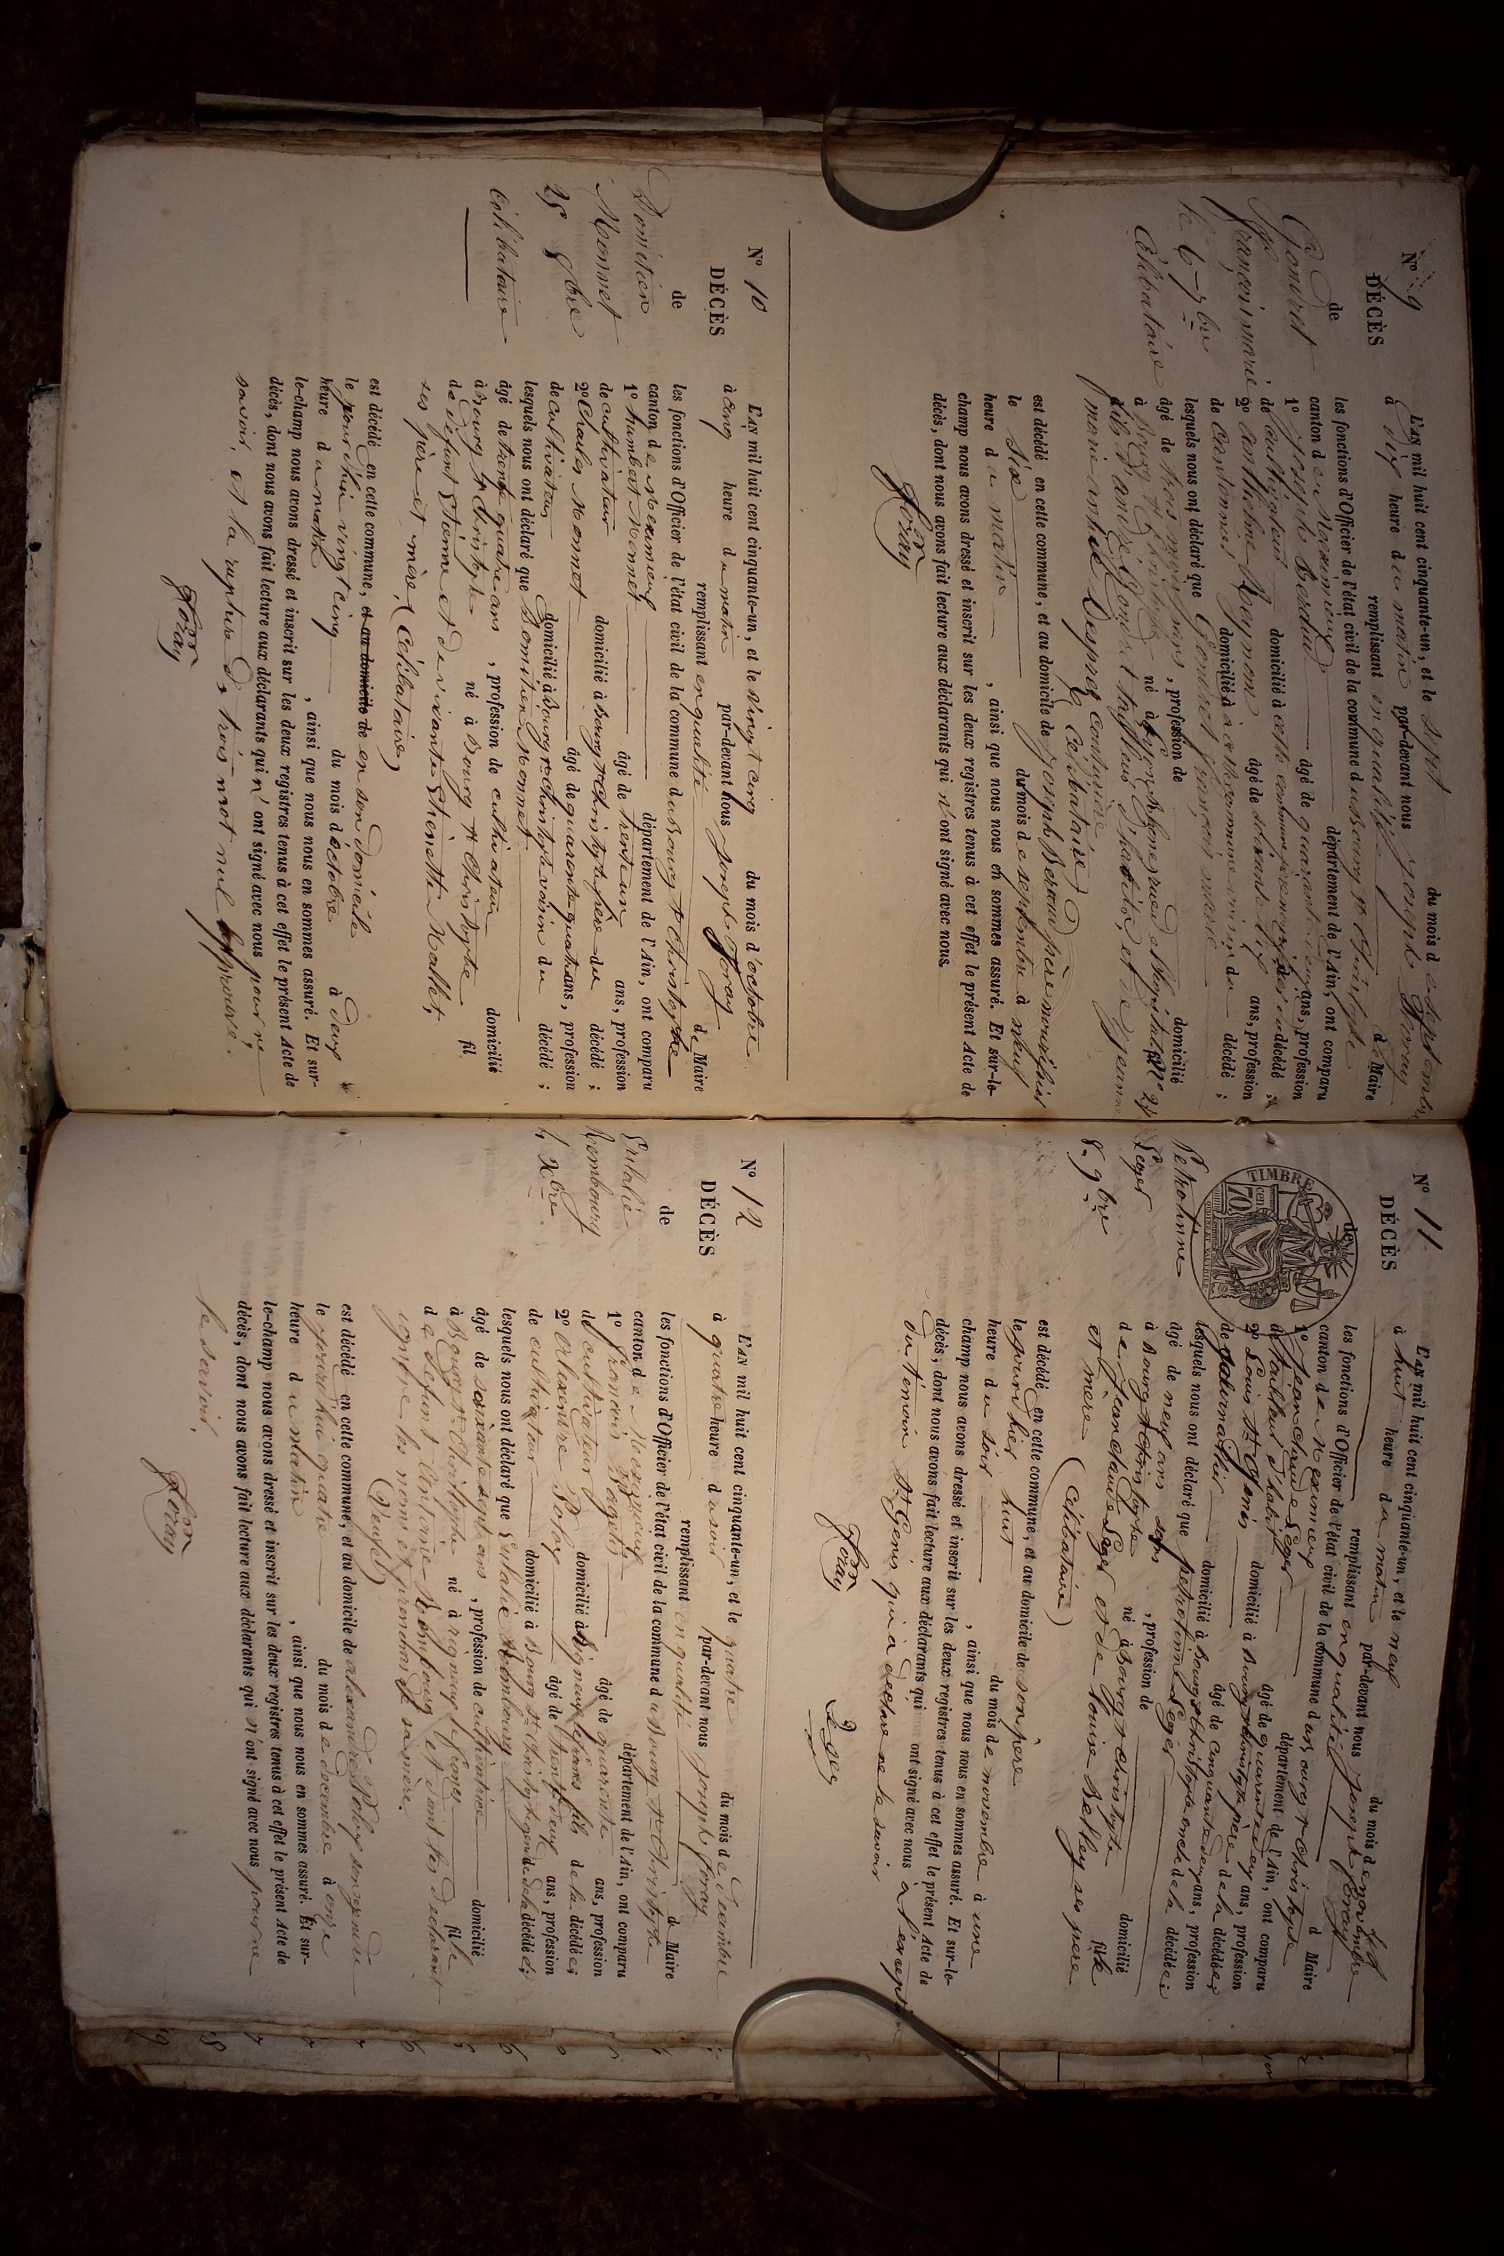 N° 9
DÉCÈS
de
Gondret
François marie
le 6 7bre
Célibataire
L'AN mil huit cent cinquante-un, et le sept du mois de Septembre
à dix heure du matin par-devant nous joseph Foray
remplissant en qualité de Maire
les fonctions d'Officier de l'état civil de la commune du Bourg St Christophe
canton de Meximieux département de l'Ain, ont comparu
1° joseph Beraud âgé de quarante ans, profession
de domicilié à cette commune décédé ;
2° Anthelme Reymond âgé de soixante dix ans, profession
de cantonnier domicilié à commune voisin du décédé ;
lesquels nous ont déclaré que Gondret françois marie
âgé de trois mois ans, profession de domicilié
à Bourg St Christophe né à Lyon Rhône
fils d'anne Gondret tailleur d'habits, et de jeanne
marie couturière Célibataire
est décédé en cette commune, et au domicile de joseph Beraud père nourricier
le Six du mois de septembre à neuf
heure du matin, ainsi que nous nous en sommes assuré. Et sur-le-
champ nous avons dressé et inscrit sur les deux registres tenus à cet effet le présent Acte de
décès, dont nous avons fait lecture aux déclarants qui n'ont signé avec nous.
Foray
N° 10
DÉCÈS
de
Domitien
Monnet
25 8bre
Célibataire
L'AN mil huit cent cinquante-un, et le vingt cinq du mois d'octobre
à cinq heure du matin par-devant nous joseph Foray
remplissant en qualité de Maire
les fonctions d'Officier de l'état civil de la commune du Bourg St Christophe
canton de Meximieux département de l'Ain, ont comparu
1° humbert Monnet âgé de trente un ans, profession
de cultivateur domicilié à Bourg St Christophe frère du décédé ;
2° Charles Monnet âgé de quarante quatre ans, profession
de cultivateur domicilié à Bourg St Christophe voisin du décédé ;
lesquels nous ont déclaré que Domitien Monnet
âgé de trente quatre ans, profession de cultivateur domicilié
à Bourg St Christophe né à Bourg St Christophe fil
de défunt Etienne et de vivante Etienette Mallet,
ses père et mère, (Célibataire)
est décédé en cette commune, et au domicile de en son domicile
le jourd'hui vingt cinq du mois d'octobre à deux
heure du matin, ainsi que nous nous en sommes assuré. Et sur-
le-champ nous avons dressé et inscrit sur les deux registres tenus à cet effet le présent Acte de
décès, dont nous avons fait lecture aux déclarants qui n'ont signé avec nous pour ne
savoir, et la rupture de trois mot nul approuvé.
Foray
N° 11
DÉCÈS
de
TIMBRE
70
Petronine
Leger
8. 9bre
L'AN mil huit cent cinquante-un, et le neuf du mois de novembre
à huit heure du matin par-devant nous joseph foray
remplissant en qualité d Maire
les fonctions d'Officier de l'état civil de la commune du Bourg St Christophe
canton de Meximieux département de l'Ain, ont comparu
1° jean claude Leger âgé de quarante deux ans, profession
de tailleur d'habit domicilié à Bourg St Christophe père de la décédée ;
2° Louis St Genis âgé de cinquante deux ans, profession
de domicilié à Bourg St Christophe oncle de la décédée ;
lesquels nous ont déclaré que petronine Leger
âgé de neuf ans, profession de domicilié
à Bourg St Christophe né à Bourg St Christophe fille
de jean claude Leger et de Louise Bathey ses père
et mère (célibataire)
est décédé en cette commune, et au domicile de son père
le jour d'hier huit du mois de novembre à une
heure du soir, ainsi que nous nous en sommes assuré. Et sur-le-
champ nous avons dressé et inscrit sur les deux registres tenus à cet effet le présent Acte de
décès, dont nous avons fait lecture aux déclarants qui ont signé avec nous à l'exception
du témoin St Genis qui a declaré ne le savoir
Foray
Leger
N° 12
DÉCÈS
de
Eulalie
Rembourg
4 Xbre.
L'AN mil huit cent cinquante-un, et le quatre du mois de Decembre
à quatre heure du soir par-devant nous joseph foray
remplissant en qualité d Maire
les fonctions d'Officier de l'état civil de la commune du Bourg St Christophe
canton de Meximieux département de l'Ain, ont comparu
1° francois Pagets âgé de quarante ans, profession
de cultivateur domicilié à fils de la décédée ;
2° Alexandre Poloy âgé de trente neuf ans, profession
de cultivateur domicilié à Bourg St Christophe gendre de la décédée ;
lesquels nous ont déclaré que Eulalie Rembourg
âgé de soixante sept ans, profession de cultivatrice domicilié
à Bourg St Christophe né à rigneux le franc fille
de défunt Antoine Rembourg et dont les declarant
ignore les noms et prenoms de sa mère.
(Veuve)
est décédé en cette commune, et au domicile de alexandre Poloy son gendre
le jourd'hui quatre du mois de decembre à onze
heure du matin, ainsi que nous nous en sommes assuré. Et sur-
le-champ nous avons dressé et inscrit sur les deux registres tenus à cet effet le présent Acte de
décès, dont nous avons fait lecture aux déclarants qui n'ont signé avec nous pour ne
le savoir.
Foray